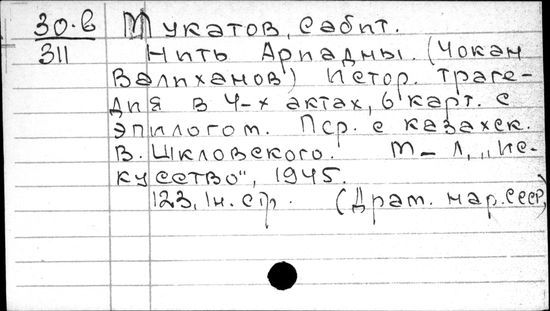 30-в Мукатов, Сабит.
311 Нить Ариадны. (Чокан
Валиханов) Истор. траге-
дия в 4-х актах, 6 карт. с
эпилогом. Пер. с казахск.
В. Шкловского. М-Л, "Ис-
кусство", 1945.
123, 1н. стр. (Драм. нар. СССР)